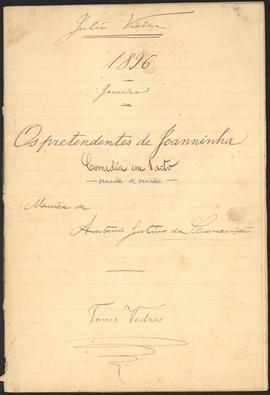 Julio Vieira
1896
Janeiro
Os pretendentes de Joanninha
Comedia em 1 acto
ornada de musica
Musica de
Antonio Justino da Conceição
Torres Vedras